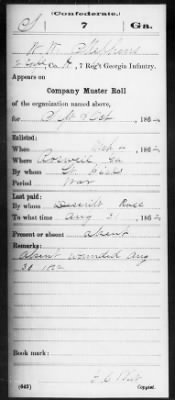 (Confederate.)
S 7 Ga.
W. W. Stephens
Co. H, 7 Reg't Georgia Infantry.
Appears on
Company Muster Roll
of the organization named above,
for Oct, 186
Enlisted:
When 186
Where Roswell Ga
By whom
Period War
Last paid:
By whom
To what time Aug 31 186
Present or absent absent
Remarks:
absent wounded Aug
30 1862
Book mark:
(642) Copyist.